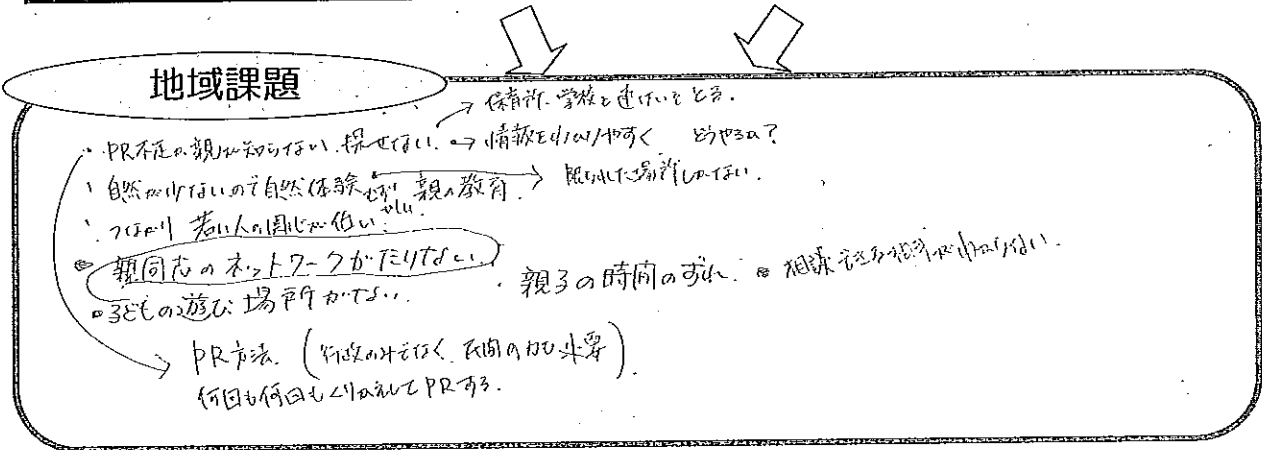 地域課題
→ 保育所、学校と連けいをとる。
・PR不足か親が知らない、探せない。→ 情報をわかりやすく どうやるの?
・自然が少ないので自然体験 親の教育. → 限られた場所しかない.
・つながり 若い人の関心が低い.
・親同志のネットワークがたりない
・子どもの遊び場所がない.
・親子の時間のずれ. ・相談できる がわからない.
→ PR方法. (行政のみでなく、民間の力も必要).
何回も何回もくりかえしてPRする.